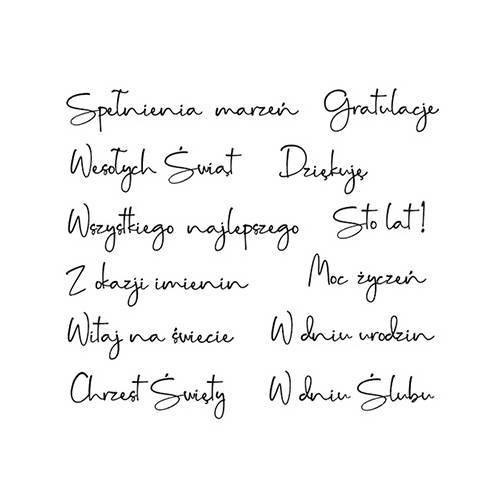 Spełnienia marzeń Gratulacje
Wesołych Świąt Dziękuję
Wszystkiego najlepszego Sto lat!
Z okazji imienin Moc życzeń
Witaj na świecie W dniu urodzin
Chrzest Święty W dniu Ślubu